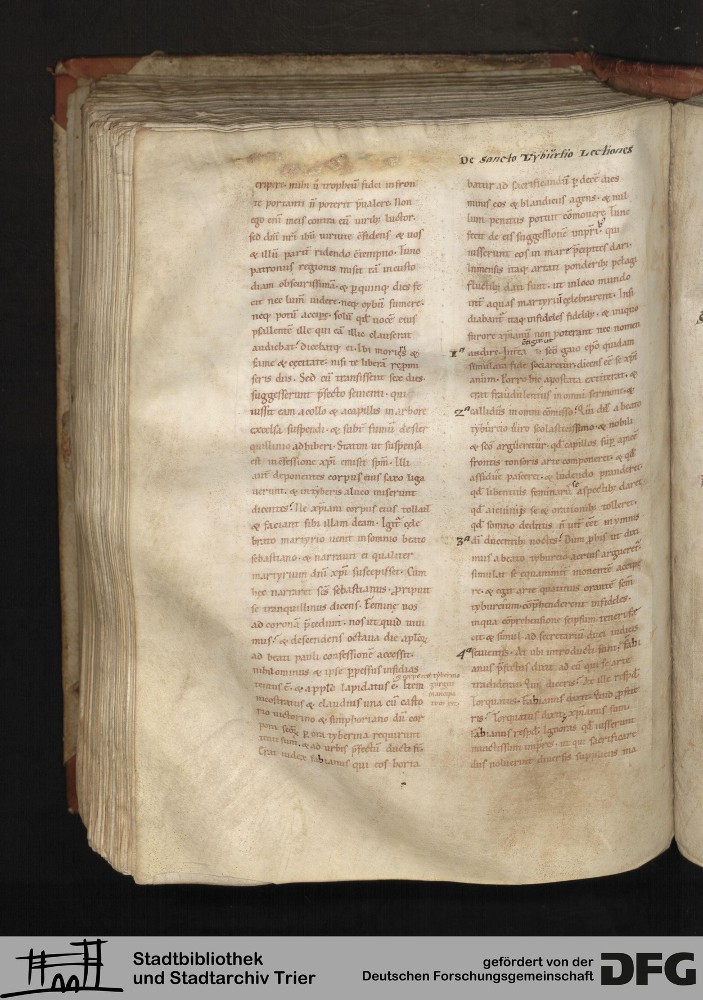 De sancto Tyburtio Lectiones
eripere. mihi ū tropheū fidei in fron
te portanti ñ poterit p̄ualere. Non
ego enī meis contra eū uirib; luctor.
sed dñi nr̄i ihū uirtute cōfidens. & uos
& illū parit ridendo cōtempno. Tunc
patronus regionis misit eā in custo
diam obscurissimā. & p quinq; dies fe
cit nec lum uidere. neq; cybū sumere.
neq; potū accipe. solū qd uocē eius
psallentē ille qui eā illic clauserat
audiebat. Dicebatq; ei. ibi morieris &
fame & execitate. nisi te liberā
feris diis. Sed cū transissent sex dies.
suggesserunt p̄fecto seuienti. qui
iussit eam a collo & a capillis in arbore
excelsa suspendi. & subt fumū de ster
quilinio adhiberi. Statim ut suspensa
est in cōfessione xp̄i emisit spm̄. Illi
aut̄ deponentes corpus eius saxo liga
uerunt. & in tyberis alueo miserunt
dicentes. Ne xp̄iani corpus eius tollant
& faciant sibi illam deam. Igit cele
brato martyrio uenit in somnio beato
sebastiano. & narrauit ei qualiter
martyrium dñi xp̄i suscepisset. Cum
hęc narraret scs̄ sebastianus. prupuit
se tranquillinus dicens. Feminę nos
ad coronā p̄cedunt. nos ut quid uiui
mus. & descendens octaua die aplo
ad beati pauli confessionē accessit.
ubi
tenus ē. & appl̄o lapidatus ē. Item
nicostratus & claudius una cū casto
rio uictorino & simphoriano dū cor
pora scōꝝ p ora tyberina requirunt
tenti sunt. & ad urbis p̄fectū ducti sū.
Erat iudex fabianus qui eos horta
batur ad sacrificandū p decē dies
minis eos & blandiciis agens. & nul
lum penitus potuit cōmouere. Tunc
fecit de eis suggestionē qui
iusserunt eos in mare p̄cipites dari.
Inmensis itaq; artati ponderib; pelagi
fluctib; dati sunt. ut in loco mundo
int aquas martyriū celebrarent. Insi
diabant itaq; infideles fidelib; & iniquo
furore xp̄ianū non poterant nec nomen
1a audire. Iuncta scō gaio epo quidam
simulata fide sociaretur. dicens eē se xp̄i
anum. Porro hic apostata extiterat. &
erat fraudulentus in omni sermone. &
2a callidus in omni cōmisso.
tyburtio uiro scolasticissimo & nobili
& scō argueretur. qd capillos sup apicē
frontis tonsoris arte componeret. & qd
assidue pasceret. & ludendo pranderet.
qd libentius feminarū aspectib; daret
qd a ieiuniis se & orationib; tolleret.
qd somno deditus
3a dī ducentib; noctes. Dum
mus a beato tyburtio acrius argueret
simulat se equanimit monentē accipe
re. & egit arte quatinus orantē scm̄
tyburtium cōp̄henderent infideles.
inqua cōp̄hensione seipsum teneri fe
cit. & simul ad secretariū duci iudicis
4a seuientis. At ubi introducti sunt. fabi
anus p̄fectus dixit ad eū qui se arte
tradiderat. Qui diceris. At ille respd
Torquatus. fabianus dixit. Quid p̄fite
ris. Torquatus dixit. xp̄ianus sum.
fabianus respd. Ignoras qd iusserunt
inuictissimi ut qui sacrificare
diis noluerint diuersis suppliciis ma
Stadtbibliothek
und Stadtarchiv Trier
gefördert von der
Deutschen Forschungsgemeinschaft
DFG